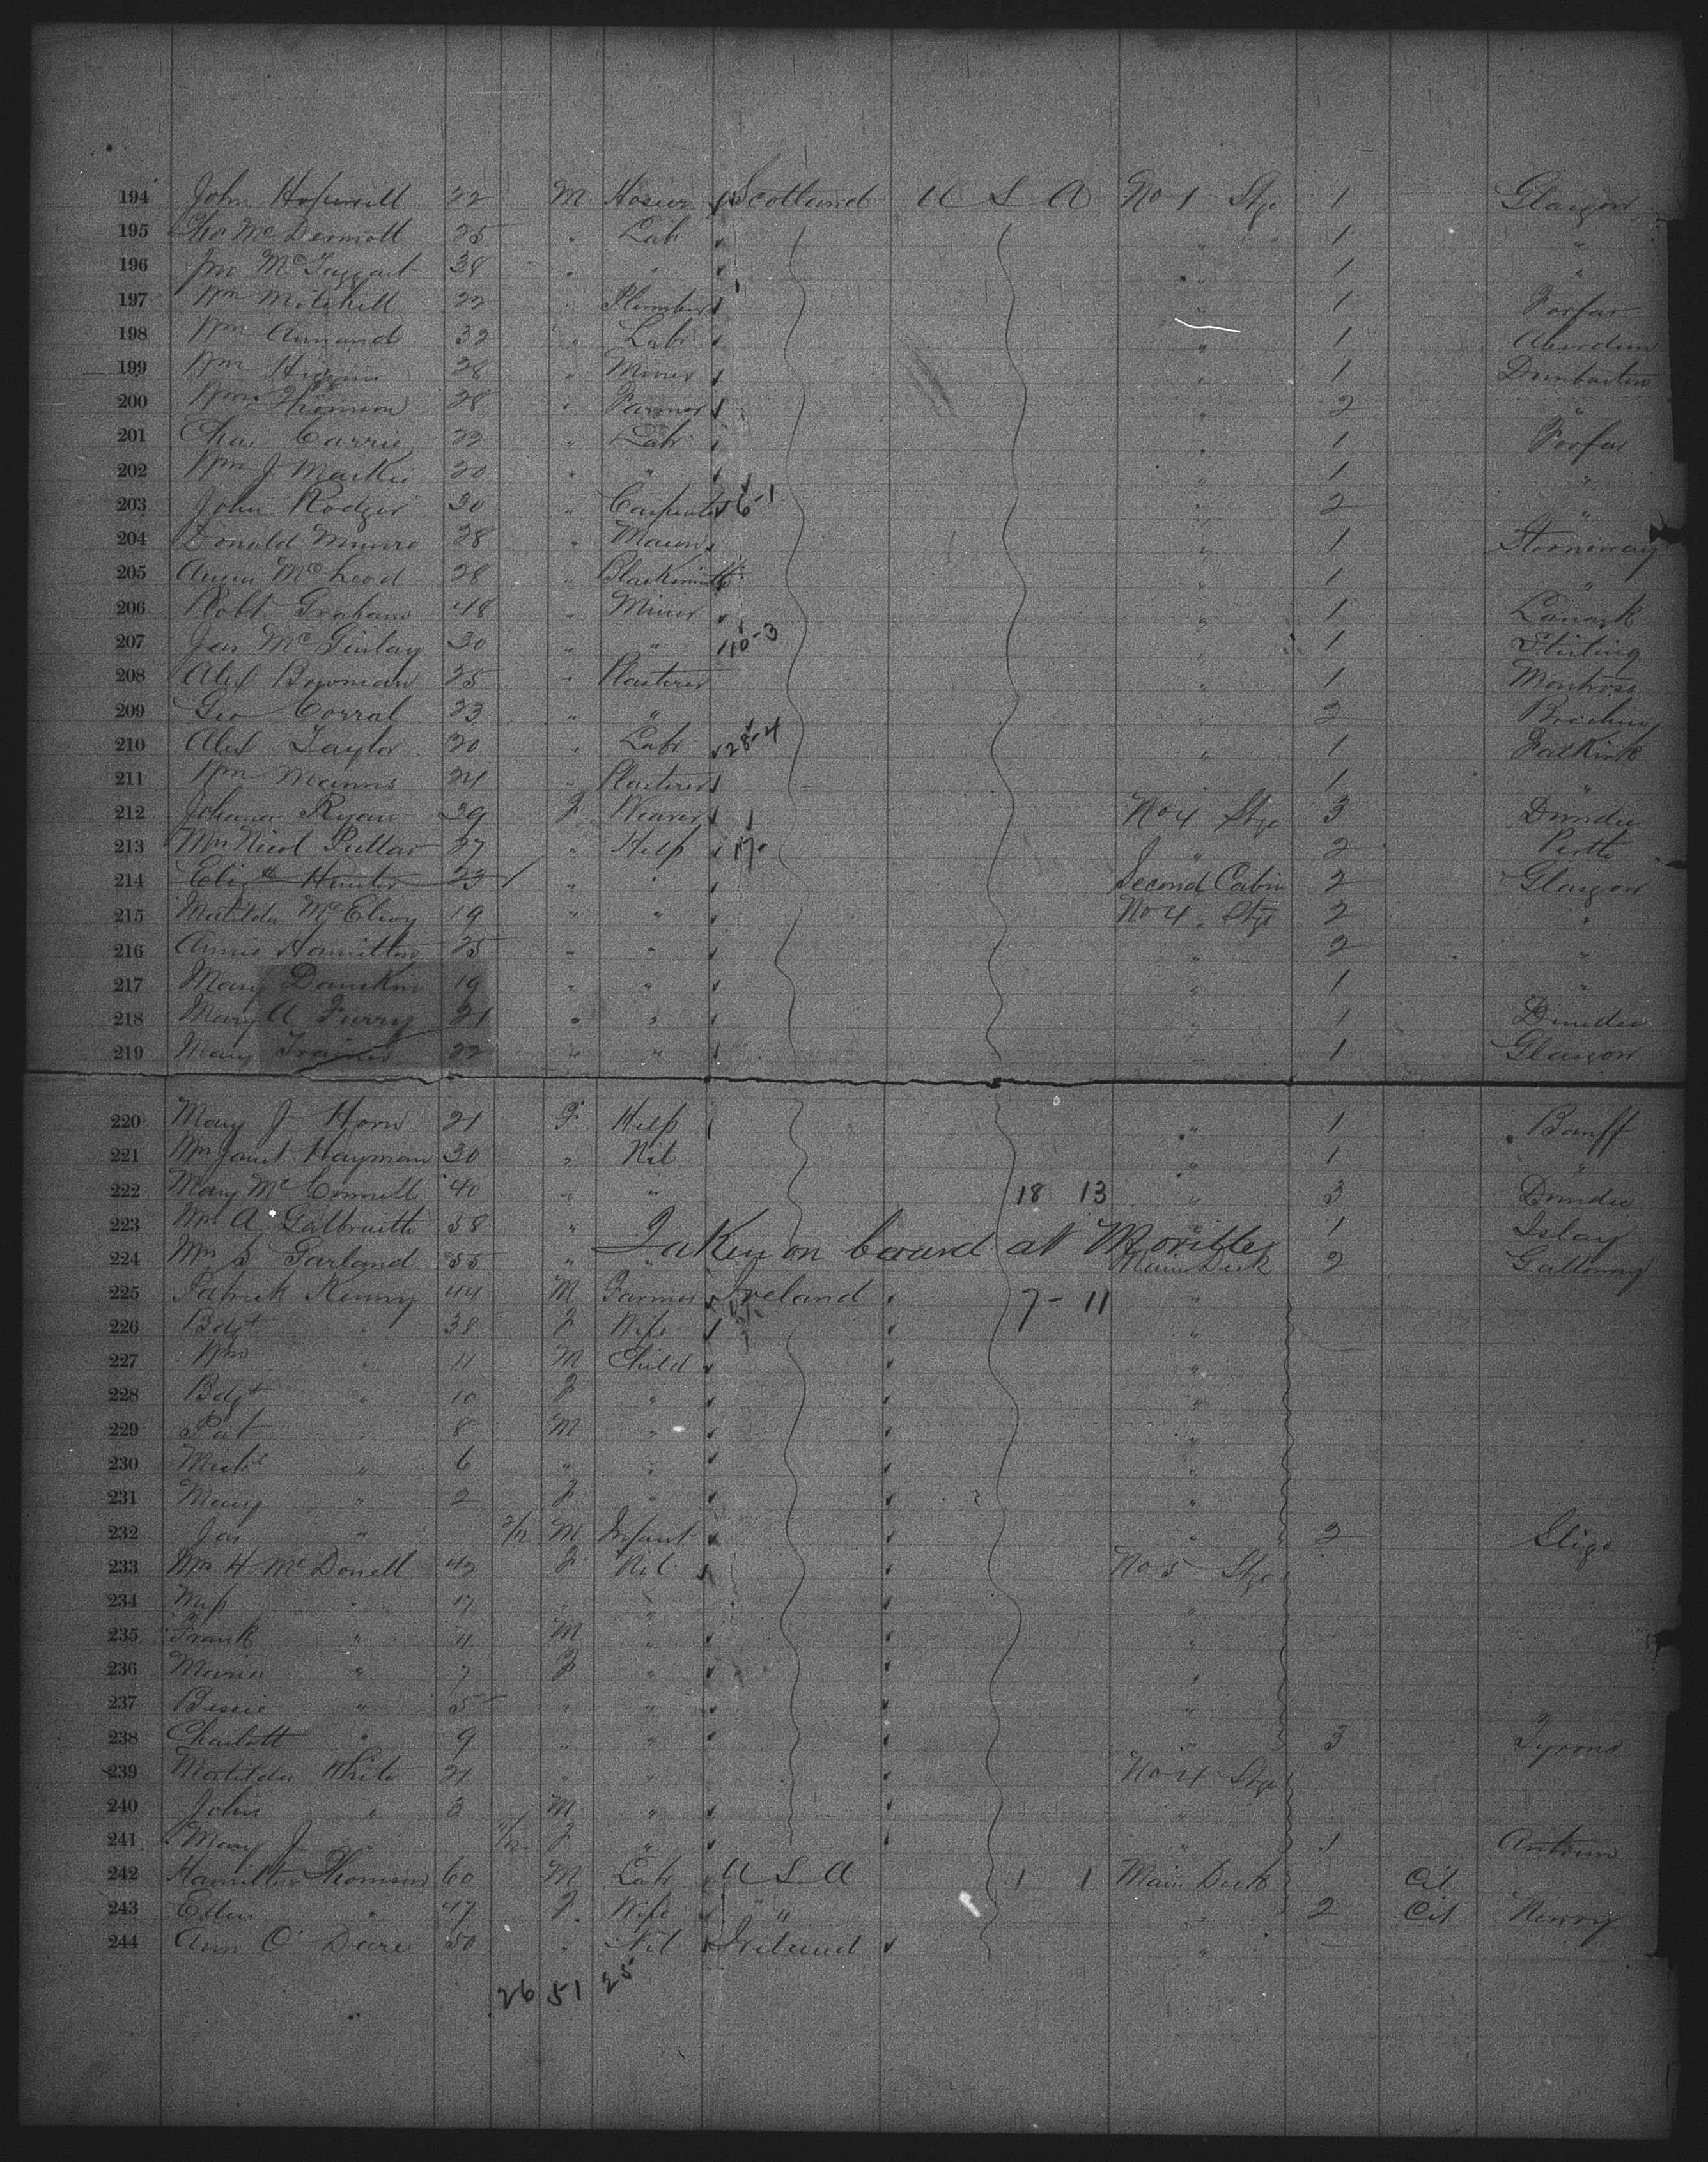 194 John Hopewell 22 M Hosier Scotland U S A No 1 Stge 1 Glasgow
195 McDermott 25 " Labr " 1 "
196 Jno McTaggart 38 " " " 1 "
197 Wm Mitchell 22 " Plumber " 1 Forfar
198 Wm Annand 32 " Labr " 1 Aberdeen
199 Wm Higgins 28 " Miner " 1 Dumbarton
200 Wm Thomson 28 " Farmer " 2 "
201 Chas Carrie 22 " Labr " 1 Forfar
202 Wm J Mackie 20 " " " 1 "
203 John Rodger 30 " Carpenter 6-1 " 2 "
204 Donald Munro 28 " Mason " 1 Stornoway
205 Angus McLeod 28 " Blacksmith " 1 "
206 Robt Graham 48 " Miner " 1 Lanark
207 Jas McGinlay 30 " " 10-3 " 1 Stirling
208 Alex Bowman 25 " Plasterer " 1 Montrose
209 Geo Corral 23 " " " 2 Brechin
210 Alex Taylor 20 " Labr 28-4 " 1 Falkirk
211 Wm Manns 24 " Plasterer " 1 "
212 Johana Ryan 39 F Weaver No 4 Stge 3 Dundee
213 Mrs Nicol Pullar 27 " Help 17 " 2 Perth
214 Elizth Hunter 23 " " Second Cabin 2 Glasgow
215 Matilda McElroy 19 " " No 4 Stge 2 "
216 Annie Hamilton 25 " " " 2 "
217 Mary Danskin 19 " " " 1 "
218 Mary A Furry 21 " " " 1 Dundee
219 Mary Trainer 22 " " 1 Glasgow
220 Mary J Horn 21 F Help " 1 Banff
221 Mrs Janet Hayman 30 " Nil " 1 "
222 Mary McConnell 40 " " 18 13 " 3 Dundee
223 Mrs A Galbraith 58 " 1 Islay
Taken on board at Moville
224 Mrs S Garland 55 " " Main Deck 2 Galloway
225 Patrick Kenny 44 M Farmer Ireland 7-11 "
226 Bdgt " 38 F Wife "
227 Wm " 11 M Child "
228 Bdgt " 10 F " "
229 Pat " 8 M " "
230 Michl " 6 " " "
231 Mary " 2 F " "
232 Jas " 2/12 M Infant " 2 Sligo
233 Mrs H McDonell 42 F Nil No 5 Stge
234 Miss " 17 " " "
235 Frank " 11 M " "
236 Maria " 7 F " "
237 Bessie " 5 " " "
238 Charlott " 9 " " " 3 Tyrone
239 Matilda White 21 " " No 4 Stge
240 John " 3 M " "
241 Mary J " 11/12 F " " 1 Antrim
242 Hamilton Thomson 60 M Labr U S A 1 1 Main Deck Cit
243 Ellen " 47 F Wife " " " 2 Cit Newry
244 Ann O'Dare 50 " Nil Ireland "
26 51 25